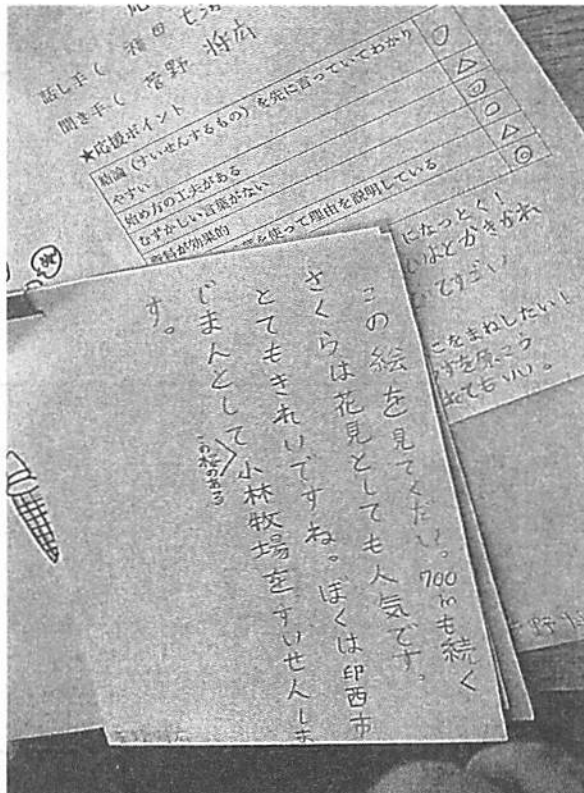 話し手（
聞き手（ 菅野 将広
★応援ポイント
結論（すいせんするもの）を先に言っていてわかりやすい ○
始め方の工夫がある △
むずかしい言葉がない ◎
資料が効果的 ○
を使って理由を説明している △
◎
になっとく！
てすごい
をまねしたい！
もいい。
この絵を見てください。700mも続く
さくらは花見としても人気です。
とてもきれいですね。ぼくは印西市
じまんとして小林牧場をすいせんしま
この桜のある
す。